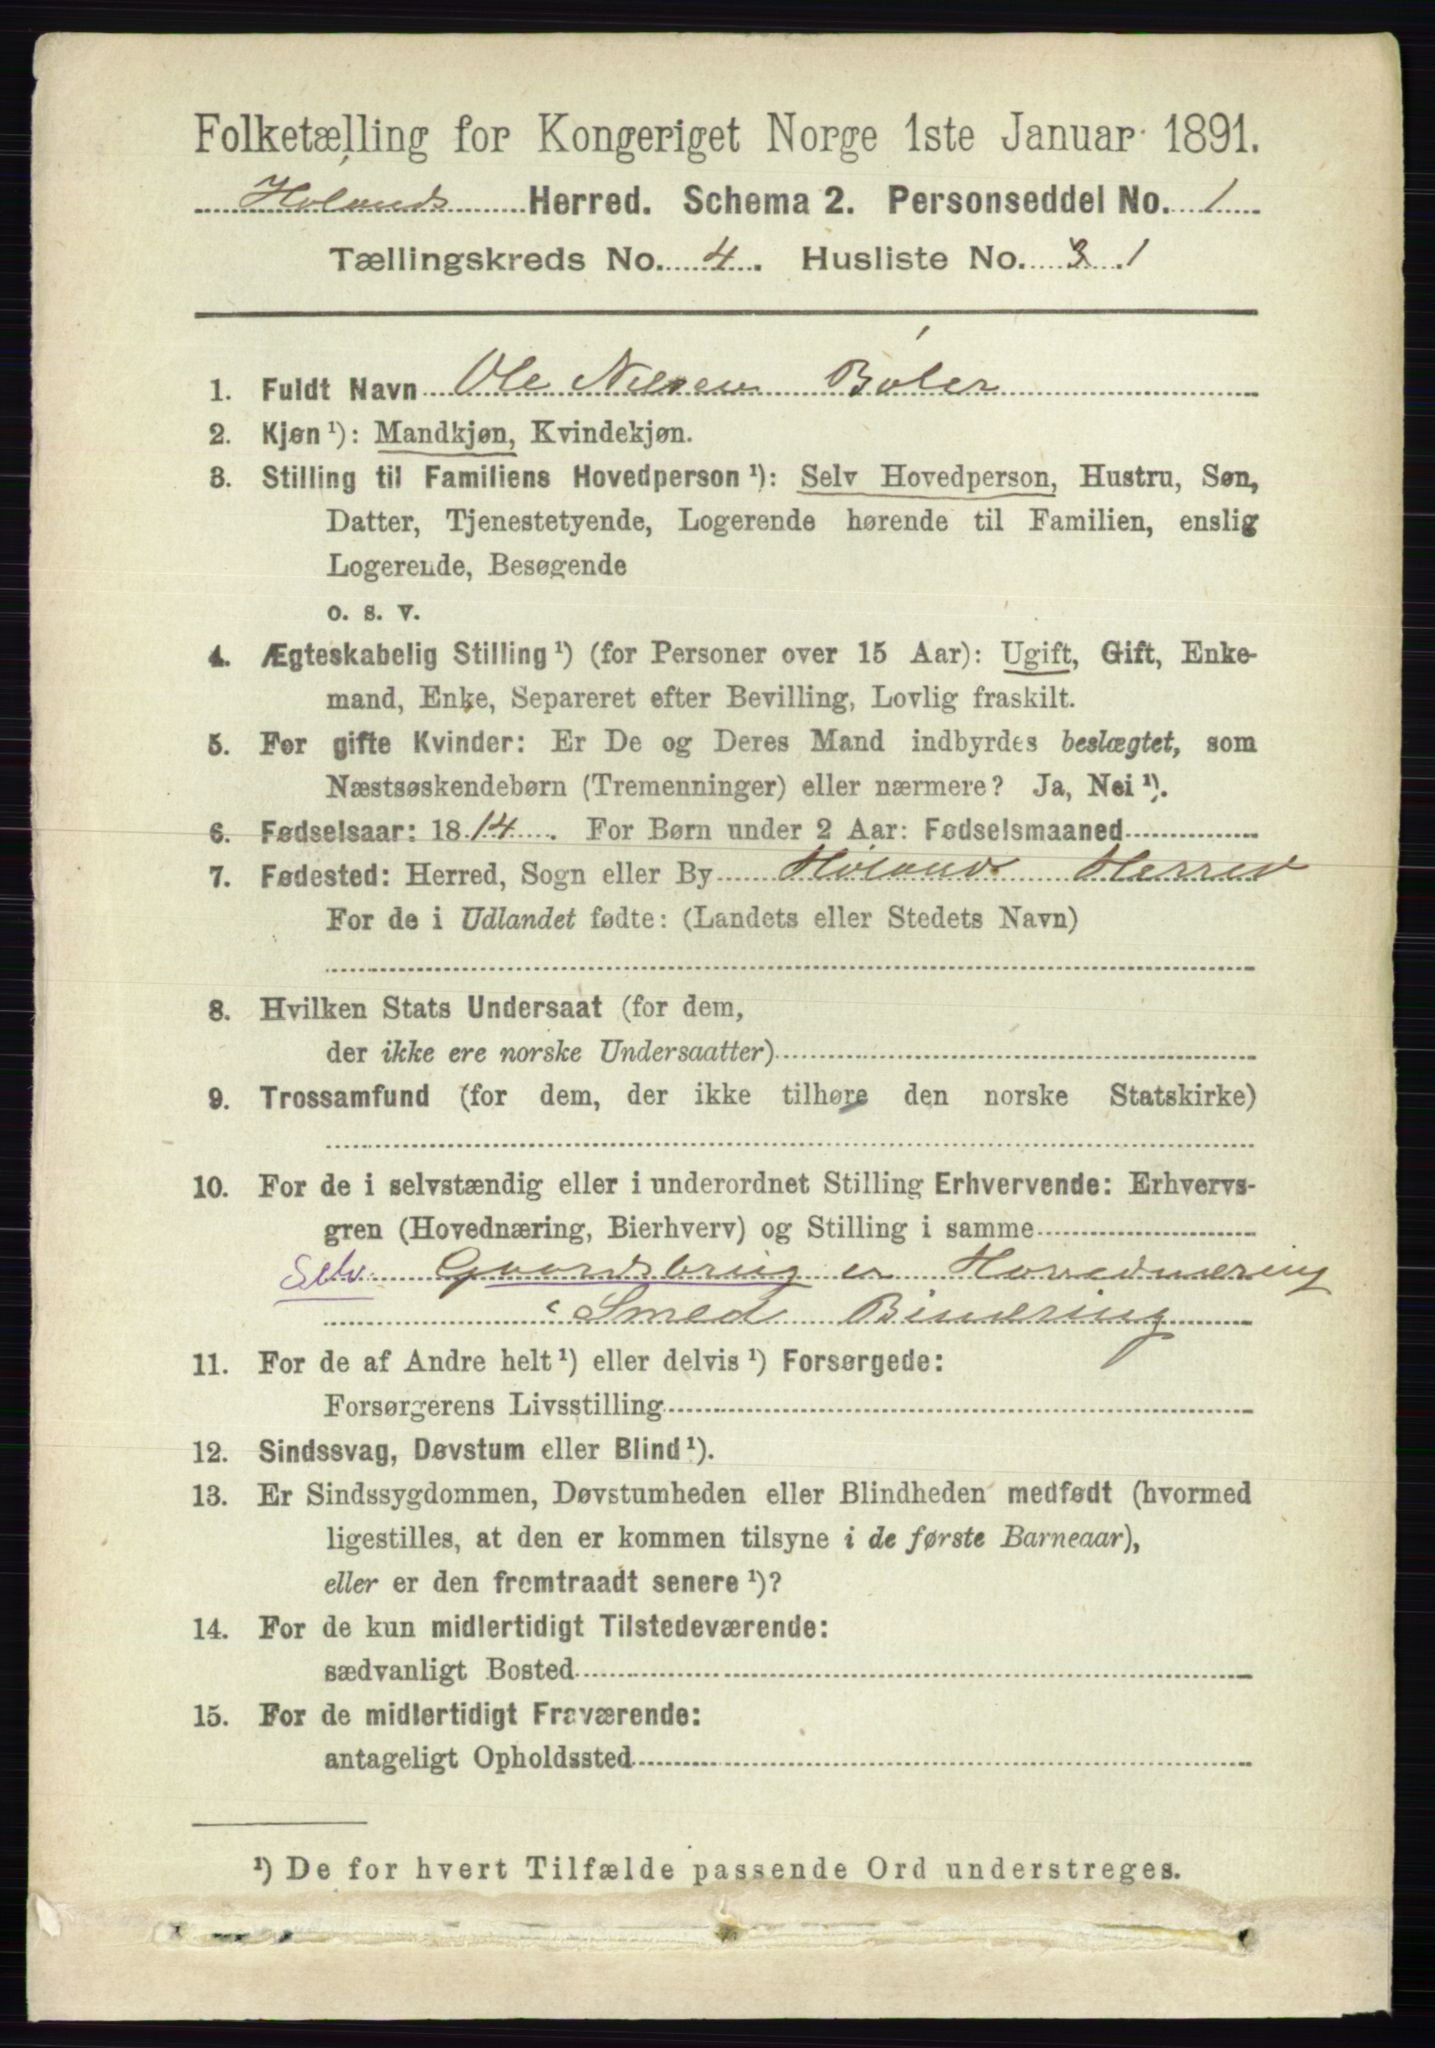 Folketælling for Kongeriget Norge 1ste Januar 1891.
Hølands Herred. Schema 2. Personseddel No. 1
Tællingskreds No. 4. Husliste No. 3 1
1. Fuldt Navn Ole Nilsen Bøler
2. Kjøn ¹): Mandkjøn, Kvindekjøn.
3. Stilling til Familiens Hovedperson ¹): Selv Hovedperson, Hustru, Søn,
Datter, Tjenestetyende, Logerende hørende til Familien, enslig
Logerende, Besøgende
o. s. v.
4. Ægteskabelig Stilling ¹) (for Personer over 15 Aar): Ugift, Gift, Enke-
mand, Enke, Separeret efter Bevilling, Lovlig fraskilt.
5. For gifte Kvinder: Er De og Deres Mand indbyrdes beslægtet, som
Næstsøskendebørn (Tremenninger) eller nærmere? Ja, Nei ¹).
6. Fødselsaar: 1814. For Børn under 2 Aar: Fødselsmaaned
7. Fødested: Herred, Sogn eller By Hølands Herred
For de i Udlandet fødte: (Landets eller Stedets Navn)
8. Hvilken Stats Undersaat (for dem,
der ikke ere norske Undersaatter)
9. Trossamfund (for dem, der ikke tilhøre den norske Statskirke)
10. For de i selvstændig eller i underordnet Stilling Erhvervende: Erhvervs-
gren (Hovednæring, Bierhverv) og Stilling i samme
Selv. Gaardsbrug er Hovednæring
Smed Binæring
11. For de af Andre helt ¹) eller delvis ¹) Forsørgede:
Forsørgerens Livsstilling
12. Sindssvag, Døvstum eller Blind ¹).
13. Er Sindssygdommen, Døvstumheden eller Blindheden medfødt (hvormed
ligestilles, at den er kommen tilsyne i de første Barneaar),
eller er den fremtraadt senere ¹)?
14. For de kun midlertidigt Tilstedeværende:
sædvanligt Bosted
15. For de midlertidigt Fraværende:
antageligt Opholdssted
¹) De for hvert Tilfælde passende Ord understreges.